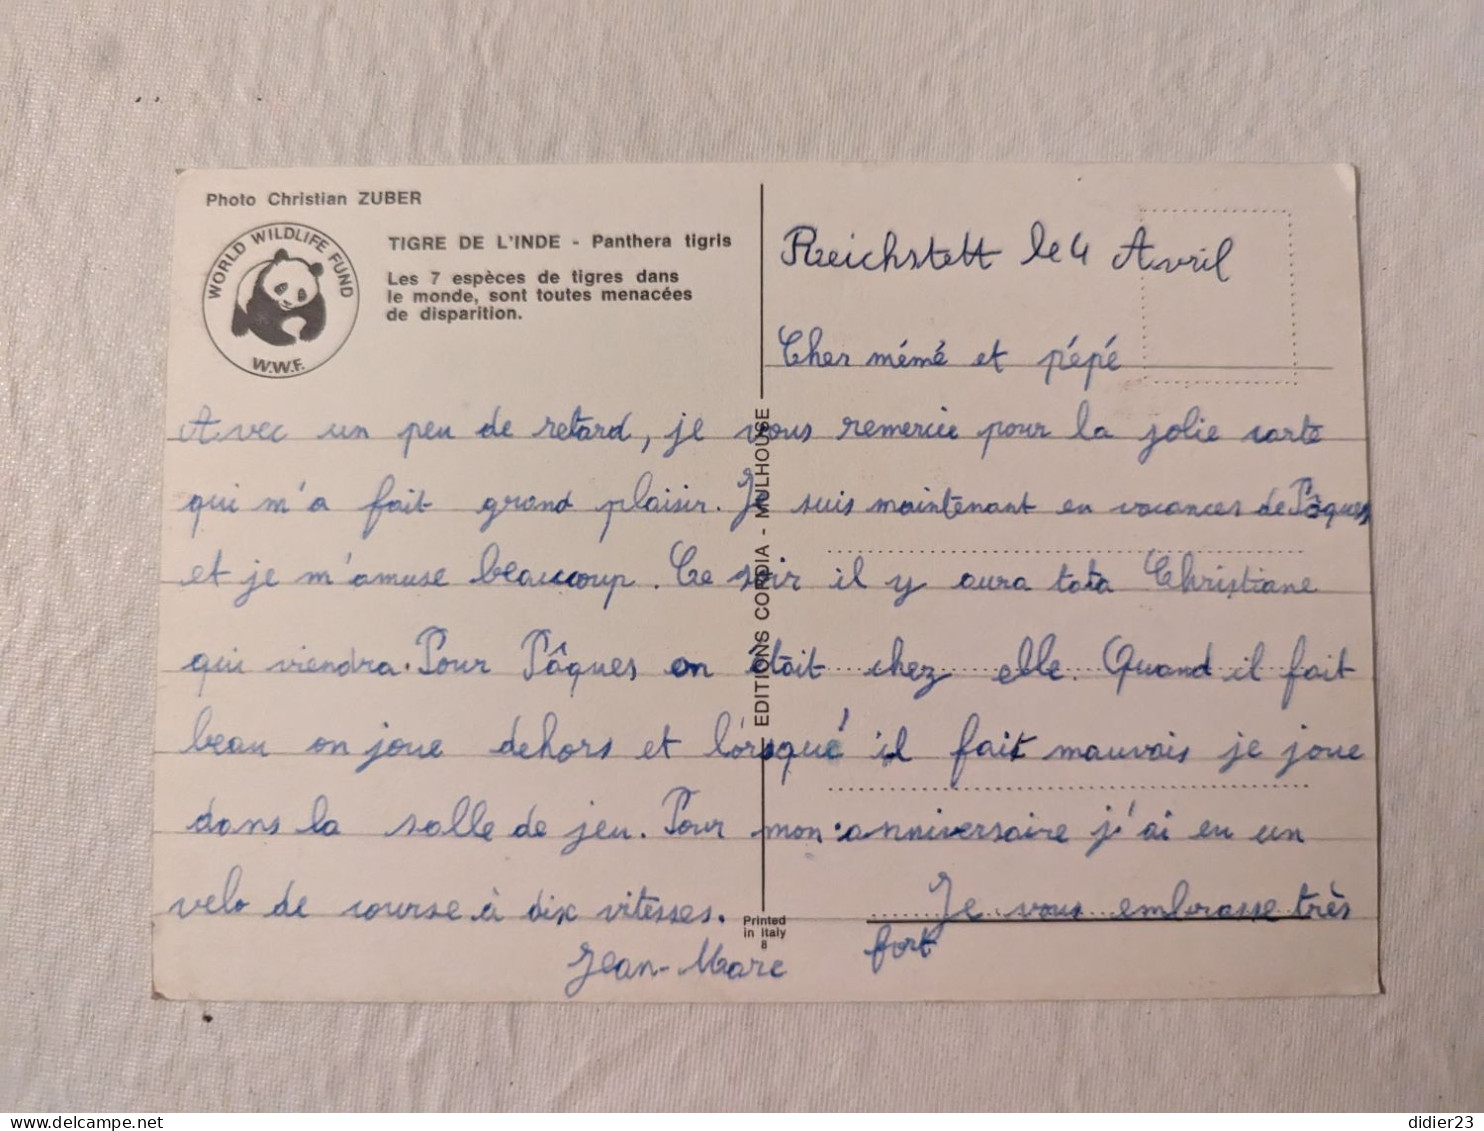 Photo Christian ZUBER
WORLD WILDLIFE FUND
W.W.F.
TIGRE DE L'INDE - Panthera tigris
Les 7 espèces de tigres dans
le monde, sont toutes menacées
de disparition.
Reichstett le 4 Avril
Cher mémé et pépé
Avec un peu de retard, je vous remercie pour la jolie carte
qui m'a fait grand plaisir. Je suis maintenant en vacances de Pâques
et je m'amuse beaucoup. Ce soir il y aura tata Christiane
qui viendra. Pour Pâques on était chez elle. Quand il fait
beau on joue dehors et lorsque il fait mauvais je joue
dans la salle de jeu. Pour mon anniversaire j'ai eu un
velo de course à dix vitesses. Je vous embrasse très
fort
Jean-Marc
EDITIONS CORDIA - MULHOUSE
Printed
in Italy
8
didier23